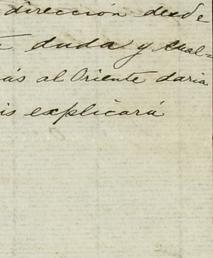 dirección desde
duda y cual=
ás al Oriente daria
is explicará